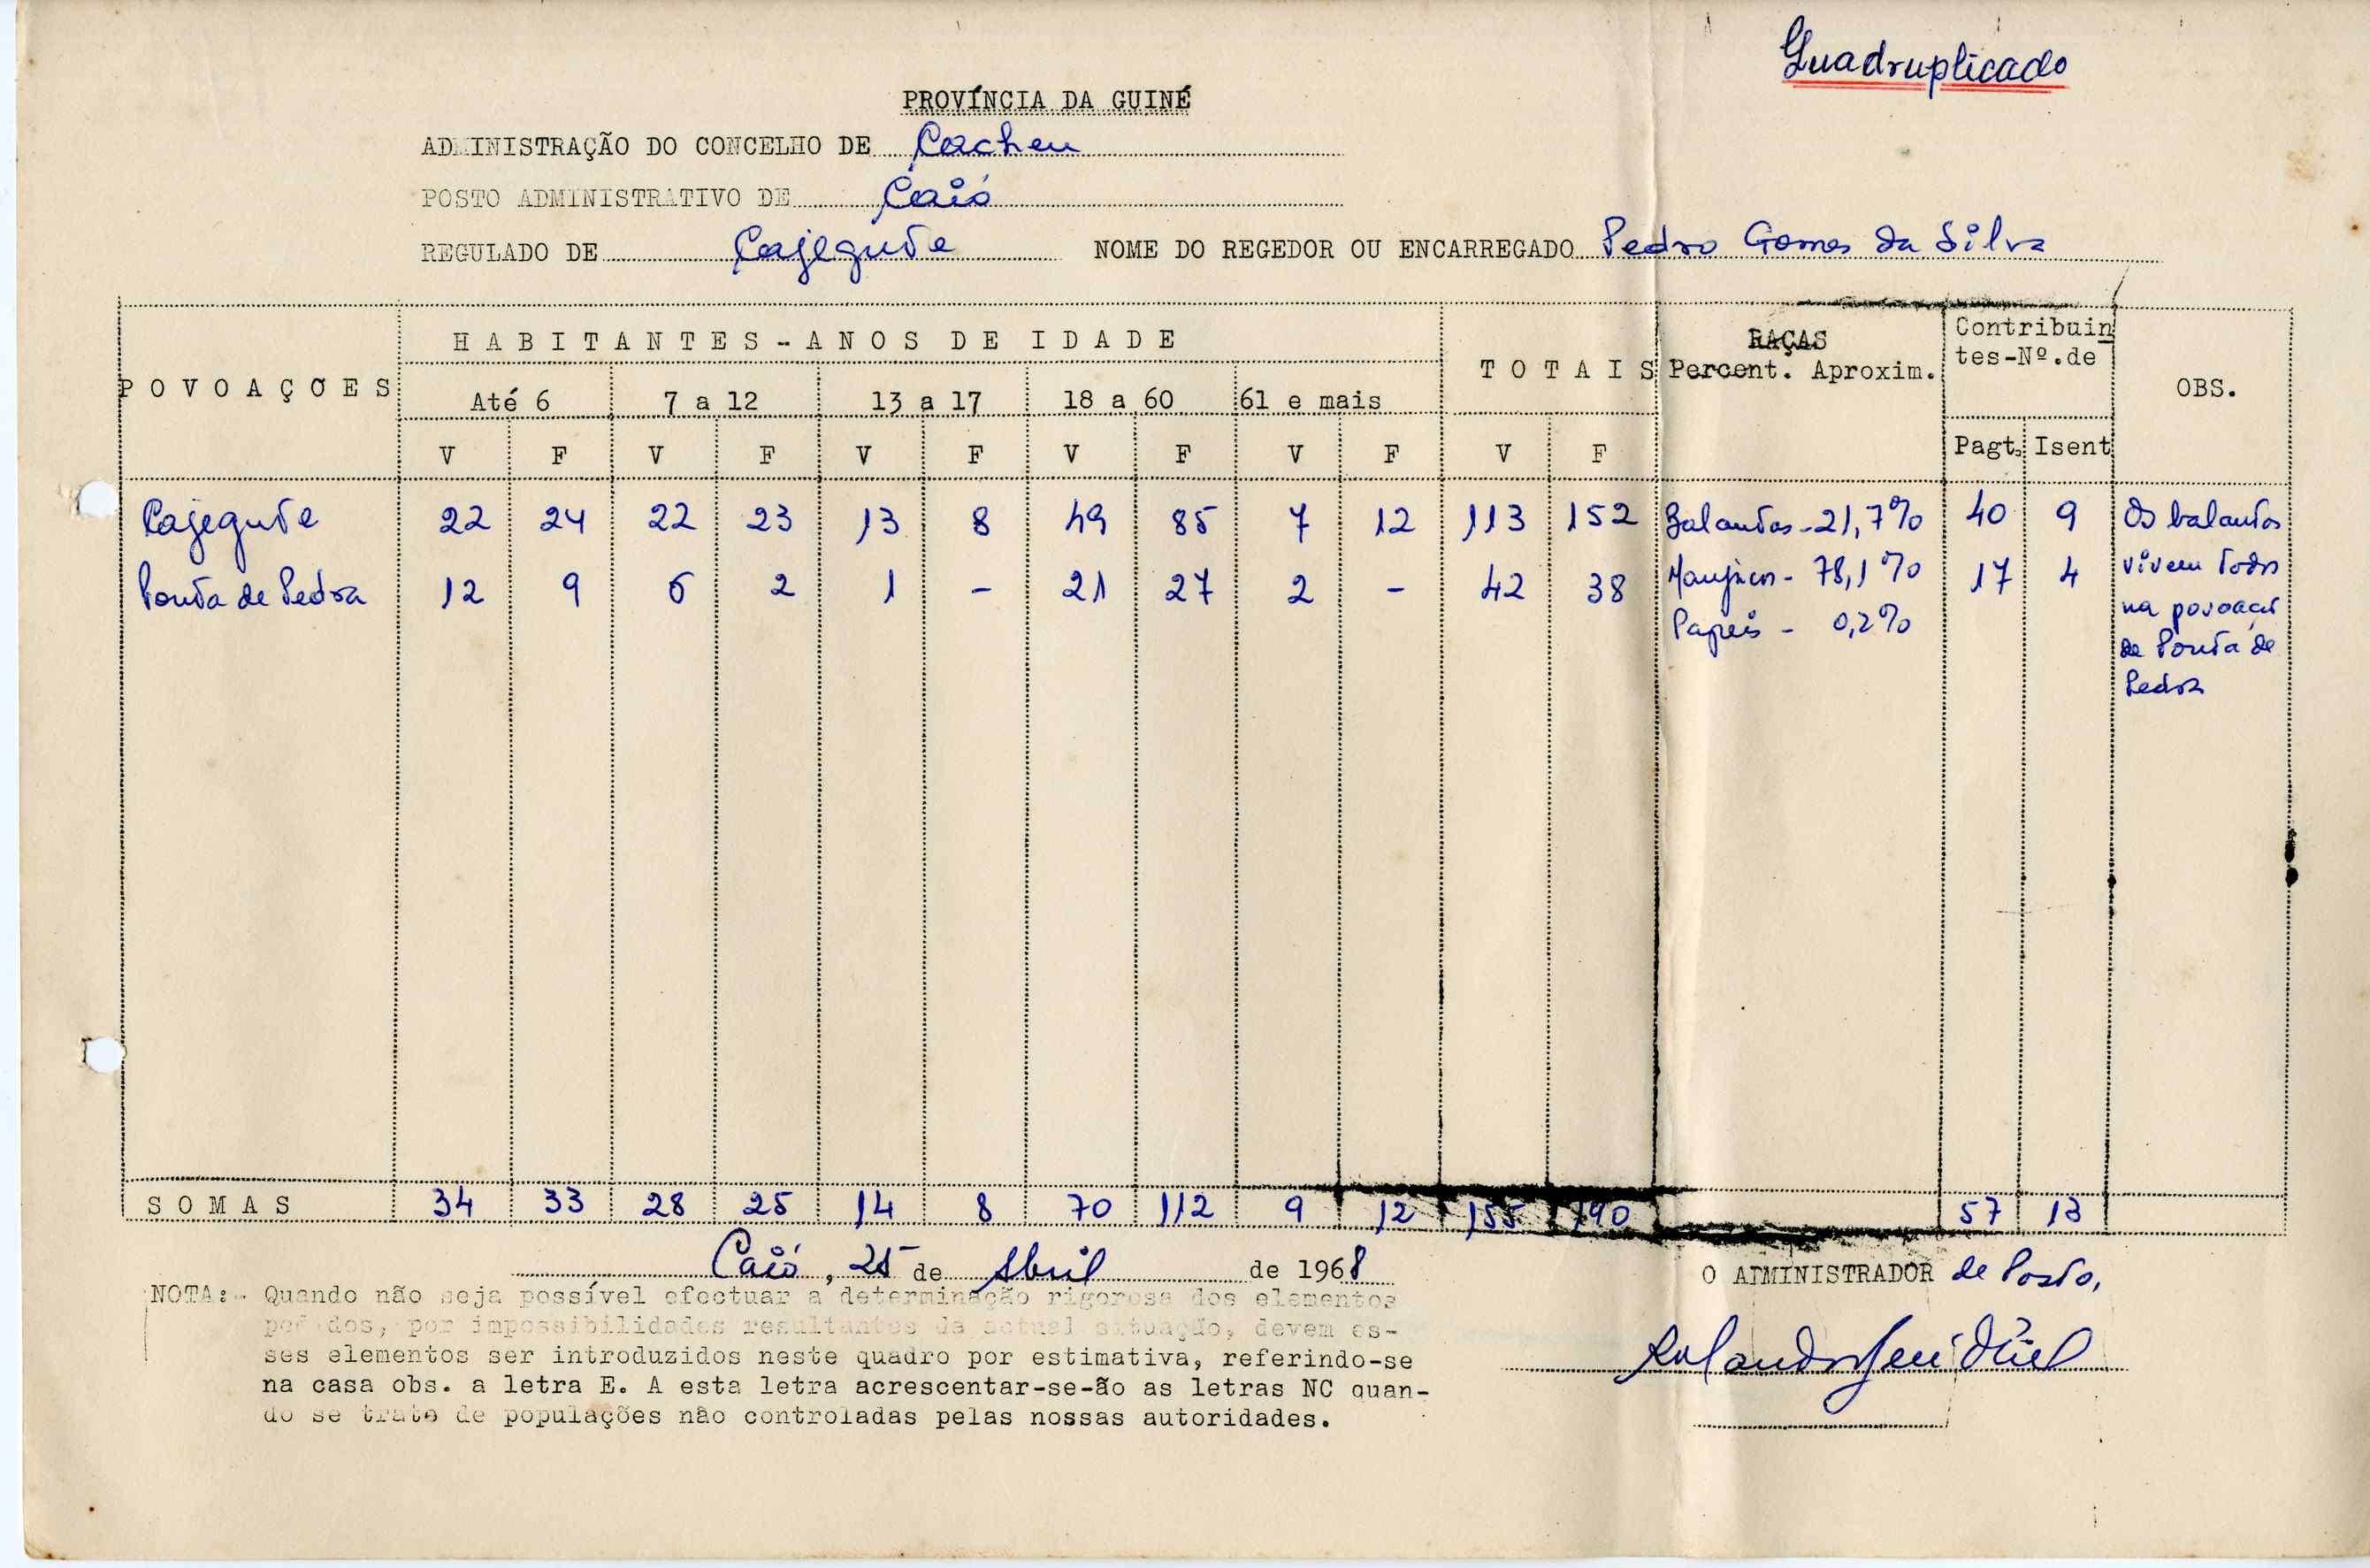 Quadruplicado
PROVÍNCIA DA GUINÉ
ADMINISTRAÇÃO DO CONCELHO DE Cacheu
POSTO ADMINISTRATIVO DE Caió
REGULADO DE Cajegute NOME DO REGEDOR OU ENCARREGADO Pedro Gomes da Silva
POVOAÇOES
HABITANTES-ANOS DE IDADE
TOTAIS
RAÇAS
Percent. Aproxim.
Contribuin
tes-Nº.de
OBS.
Até 6 7 a 12 13 a 17 18 a 60 61 e mais
V F V F V F V F V F V F Pagt. Isent
Cajegute 22 24 22 23 13 8 49 85 7 12 113 152 Balantas - 21,7% 40 9 Os balantas
Ponta de Pedra 12 9 6 2 1 - 21 27 2 - 42 38 Manjacos - 78,1% 17 4 vivem todos
Papeis - 0,2% na povoação
de Ponta de
Pedra
SOMAS 34 33 28 25 14 8 70 112 9 12 155 190 57 13
Caió, 25 de Abril de 1968
O ADMINISTRADOR de Posto,
NOTA:- Quando não seja possível efectuar a determinação rigorosa dos elementos
pedidos, por impossibilidades resultantes da actual situação, devem es-
ses elementos ser introduzidos neste quadro por estimativa, referindo-se
na casa obs. a letra E. A esta letra acrescentar-se-ão as letras NC quan-
do se trate de populações não controladas pelas nossas autoridades.